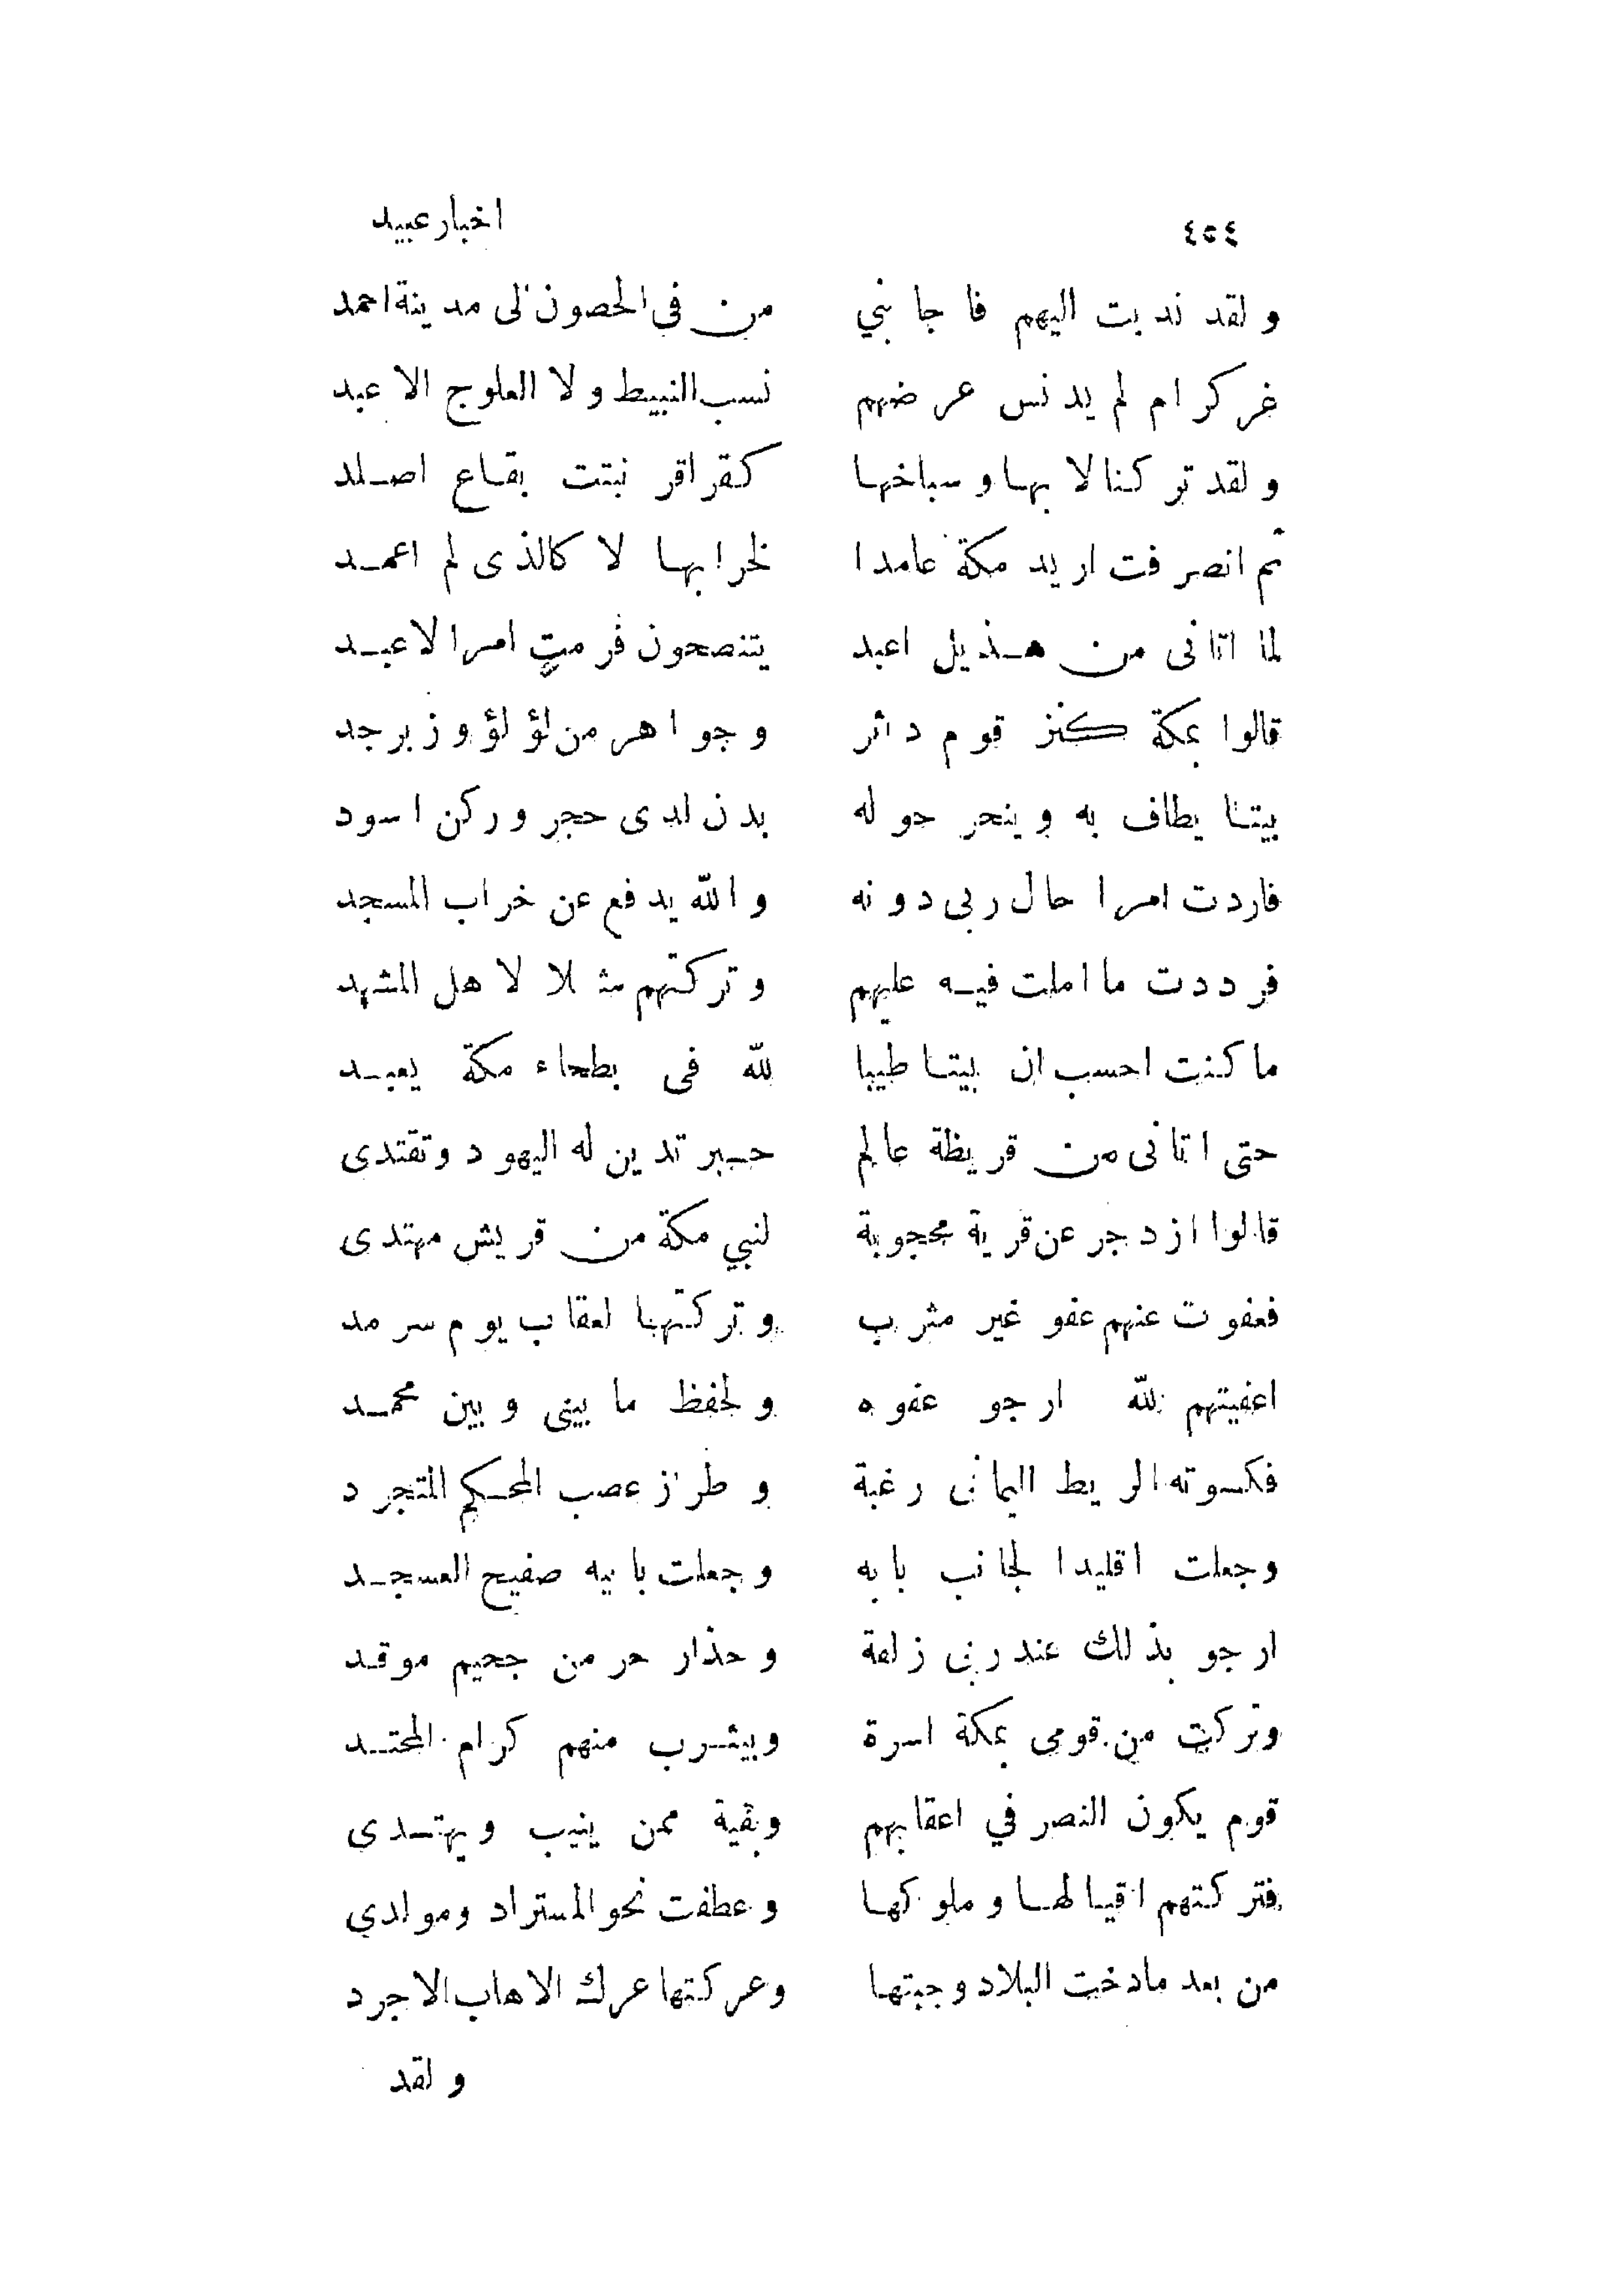 ٤٥٤ اخبار عبيد
ولقد ندبت اليهم فاجابني من في الحصون الى مدينة احمد
غر كرام لم يدنس عرضهم نسب النبيط ولا العلوج الاعبد
ولقد تركنا لابها وسباخها كقراقر نبتت بقاع اصلد
ثم انصرفت اريد مكة عامدا لخرابها لا كالذى لم اعمد
لما اتانى من هذيل اعبد يتنصحون فرمتٍ امرا لاعبد
قالوا بمكة كنز قوم داثر وجواهر من لؤلؤ وزبرجد
بيتا يطاف به وينحر حوله بدن لدى حجر وركن اسود
فاردت امرا حال ربى دونه والله يدفع عن خراب المسجد
فرددت ما املت فيه عليهم وتركتهم مثلا لاهل المشهد
ما كنت احسب ان بيتا طيبا لله فى بطحاء مكة يعبد
حتى اتانى من قريظة عالم حبر تدين له اليهود وتقتدى
قالوا ازدجر عن قرية محجوبة لنبي مكة من قريش مهتدى
فعفوت عنهم عفو غير مثرب وتركتها لعقاب يوم سرمد
اعفيتهم لله ارجو عفوه ولحفظ ما بينى وبين محمد
فكسوته الريط اليمانى رغبة وطراز عصب المحكم المتجرد
وجعلت اقليدا لجانب بابه وجعلت بابيه صفيح العسجد
ارجو بذلك عند ربى زلفة وحذار حر من جحيم موقد
وتركت من قومى بمكة اسرة وبيثرب منهم كرام المحتد
قوم يكون النصر في اعقابهم وبقية ممن ينيب ويهتدى
فتركتهم اقيالها وملوكها وعطفت نحو المستراد ومولدي
من بعد مادخت البلاد وجبتها وعركتها عرك الاهاب الاجرد
ولقد